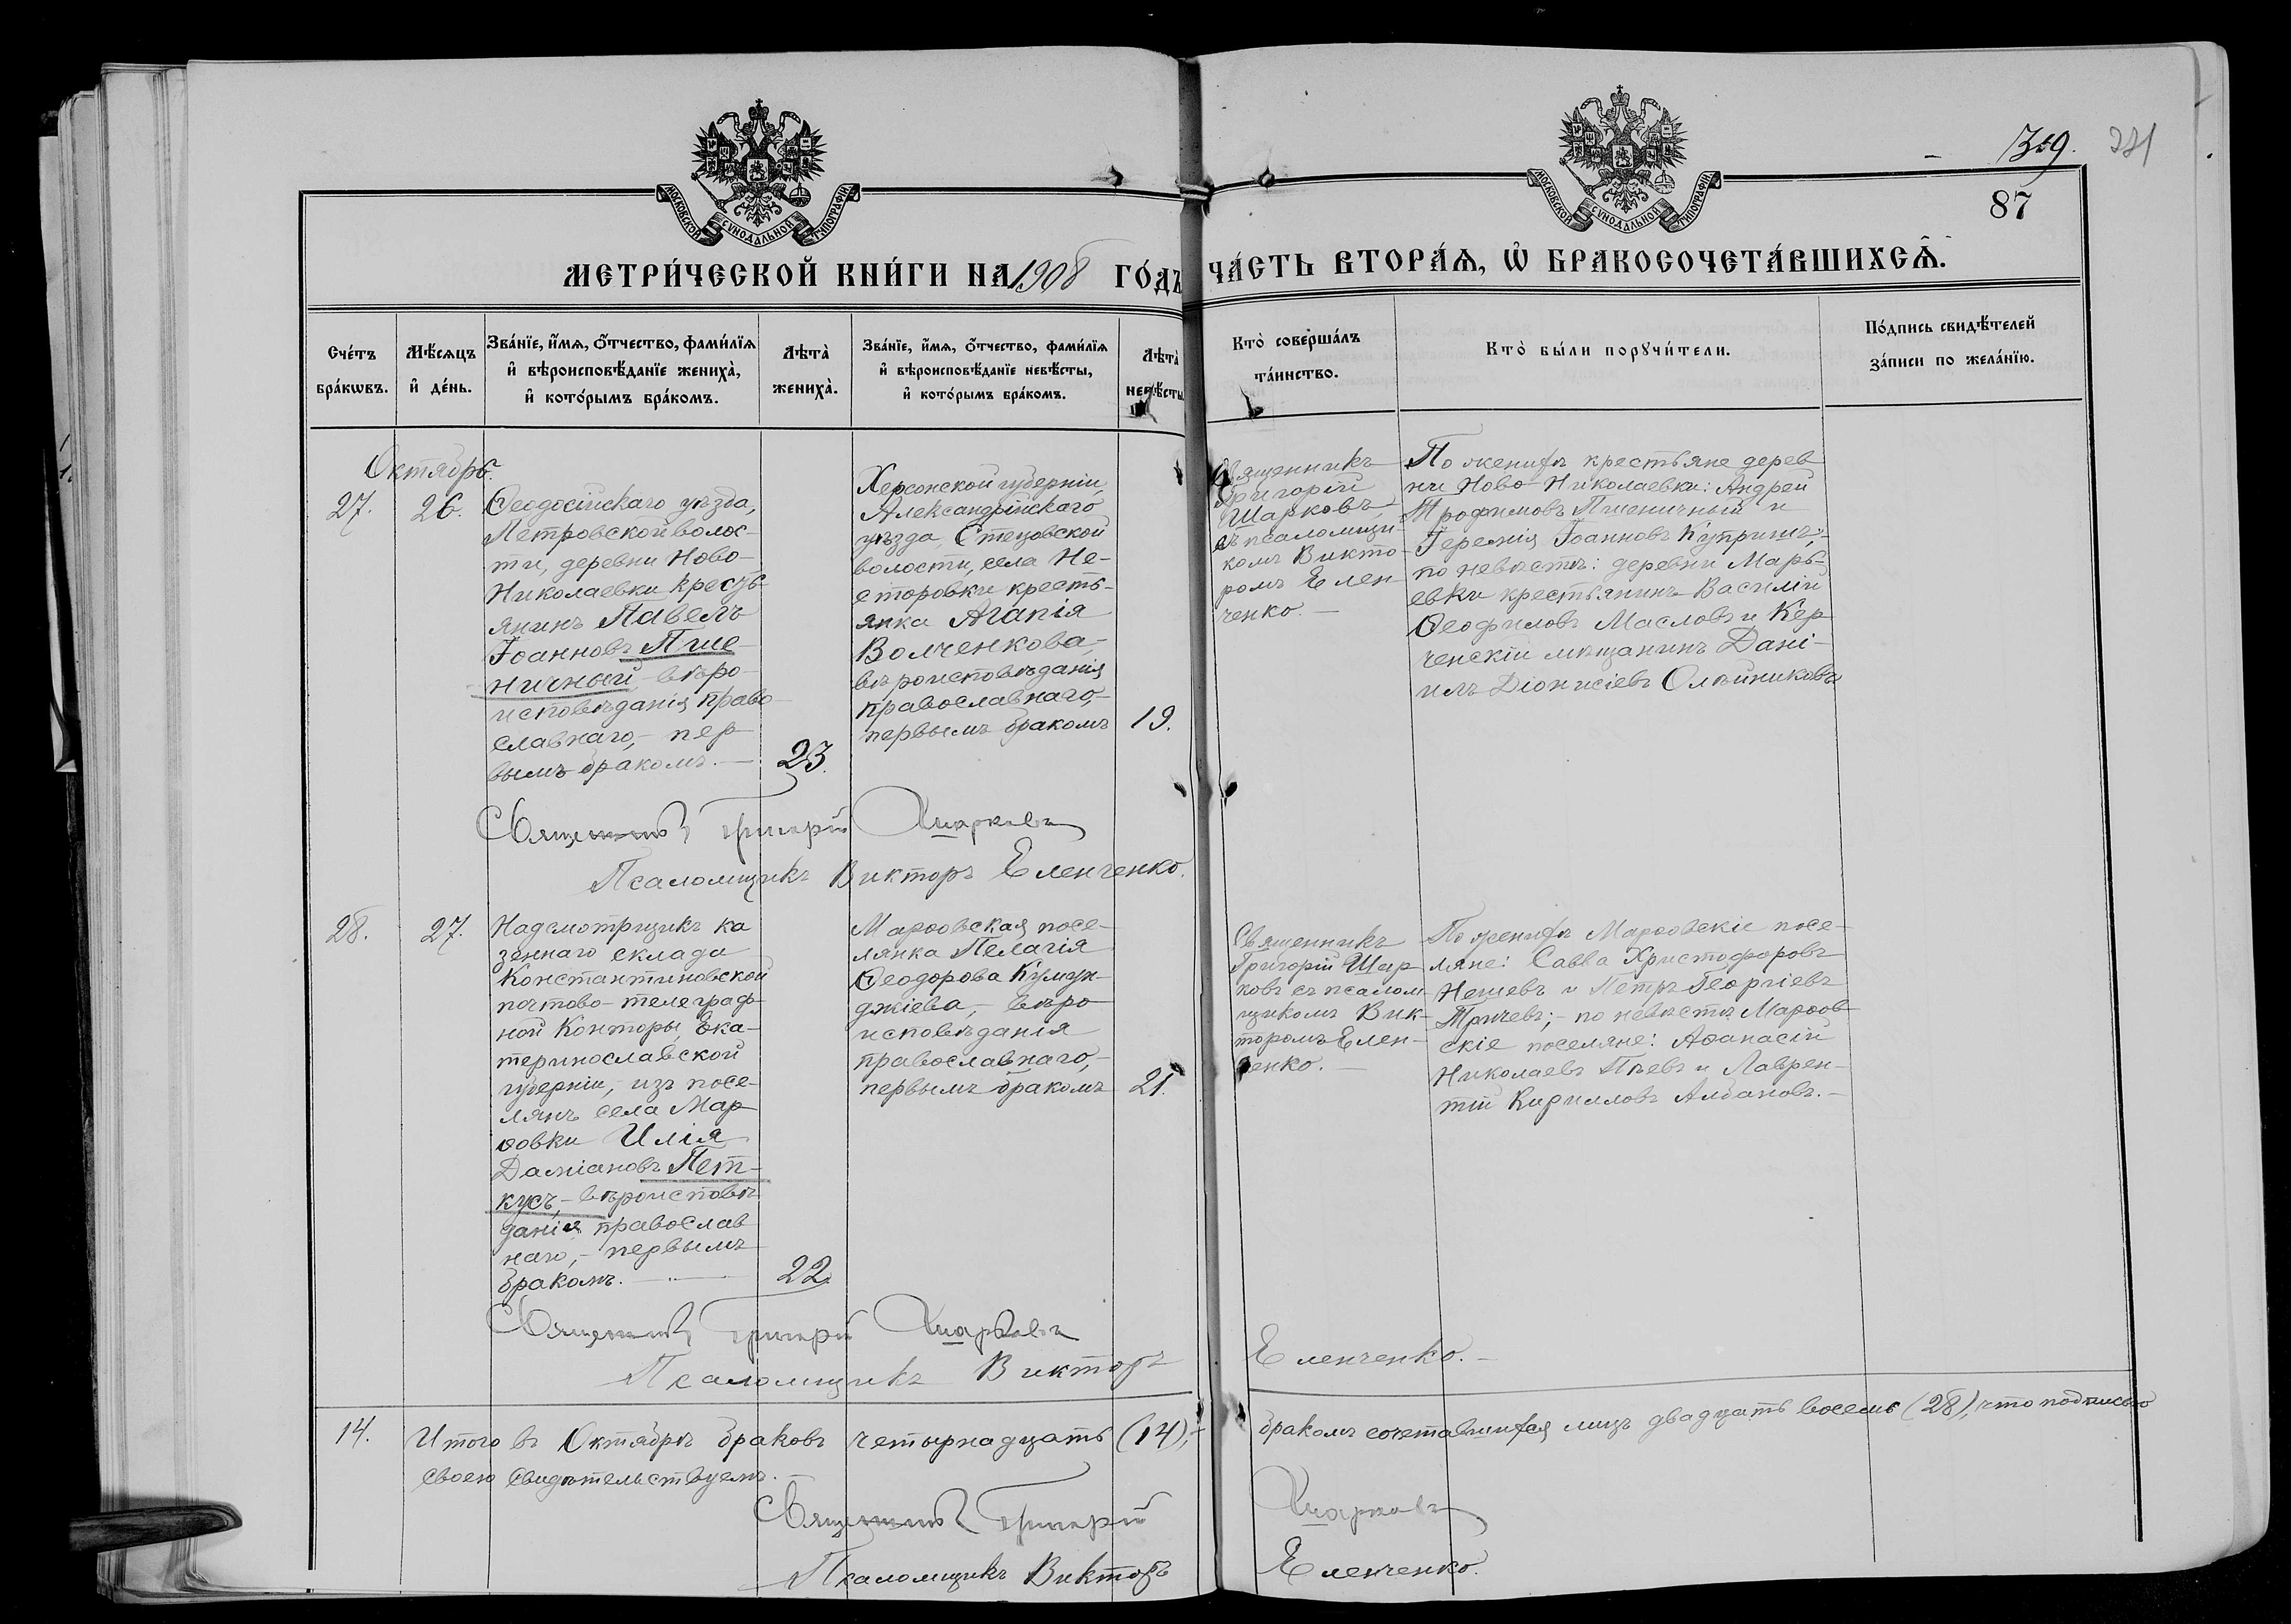 МОСКОВСКОЙ СѴНОДАЛЬНОЙ ТѴПОГРАФІИ
МОСКОВСКОЙ СѴНОДАЛЬНОЙ ТѴПОГРАФІИ
87
МЕТРИ́ЧЕСКОЙ КНИ́ГИ НА 1908 ГО́ДЪ
ЧА́СТЬ ВТОРА́Ѧ, Ѡ҆ БРАКОСОЧЕТА́ВШИХСѦ.
Сче́тъ
бра́кѡвъ.
Мѣ́сѧцъ
и҆ де́нь.
Зва́нїе, и҆́мѧ, ѻ҆́тчество, фами́лїѧ
и҆ вѣроисповѣ́данїе жениха̀,
и҆ кото́рымъ бра́комъ.
Лѣта̀
жениха̀.
Зва́нїе, и҆́мѧ, ѻ҆́тчество, фами́лїѧ
и҆ вѣроисповѣ́данїе невѣ́сты,
и҆ кото́рымъ бра́комъ.
Лѣта̀
невѣ́сты
Кто̀ соверша́лъ
та́инство.
Кто̀ бы́ли порꙋчи́тели.
По́дпись свидѣ́телей
за́писи по жела́нїю.
Октябрь.
27.
26.
Ѳеодосійскаго уѣзда,
Петровской волос-
ти, деревни Ново-
Николаевки кресть-
янинъ Павелъ
Іоанновъ Пше-
ничный вѣро-
исповѣданія право-
славнаго,- пер-
вымъ бракомъ.
23.
Херсонской губерніи,
Александрійскаго
уѣзда, Стецовской
волости, села Не-
сторовки кресть-
янка Агапія
Волченкова,-
вѣроисповѣданія
православнаго,-
первымъ бракомъ
19.
Священникъ
Григорій
Шарковъ,
съ псаломщи-
комъ Викто-
ромъ Елен-
ченко.
По женихѣ крестьяне дерев
ни Ново-Николаевки: Андрей
Трофимовъ Пшеничный и
Іеремія Іоанновъ Купринъ;-
по невѣстѣ: деревни Марь-
евки крестьянинъ Василій
Ѳеофиловъ Масловъ и Кер-
ченскій мѣщанинъ Дані-
илъ Діонисіевъ Олѣйниковъ
Священникъ Григорій Шарковъ
Псаломщикъ Викторъ Еленченко.
28.
27.
Надсмотрщикъ ка
зеннаго склада
Константиновской
почтово-телеграф-
ной Конторы, Ека-
теринославской
губерніи,- изъ посе-
лянъ села Мар-
ѳовки Илія
Даміановъ Пет-
кусъ,- вѣроисповѣ-
данія православ
наго,- первымъ
бракомъ.
22.
Марѳовская посе-
лянка Пелагія
Ѳеодорова Куюун-
джіева,- вѣро-
исповѣданія
православнаго,-
первымъ бракомъ
21.
Священникъ
Григорій Шар-
ковъ съ псалом-
щикомъ Вик-
торомъ Елен-
ченко.
По женихѣ Марѳовскіе посе-
ляне: Савва Христофоровъ
Нешевъ и Петръ Георгіевъ
Тричевъ;- по невѣстѣ Марѳов-
скіе поселяне: Аѳанасій
Николаевъ Пѣевъ и Лаврен-
тій Кирилловъ Албановъ.
Священникъ Григорій Шарковъ
Псаломщикъ Викторъ Еленченко.
14.
Итого въ Октябрѣ браковъ четырнадцать (14),- бракомъ сочетавшихся лицъ двадцать восемь (28), что подписью
своею свидѣтельствуемъ.
Священникъ Григорій Шарковъ
Псаломщикъ Викторъ Еленченко.